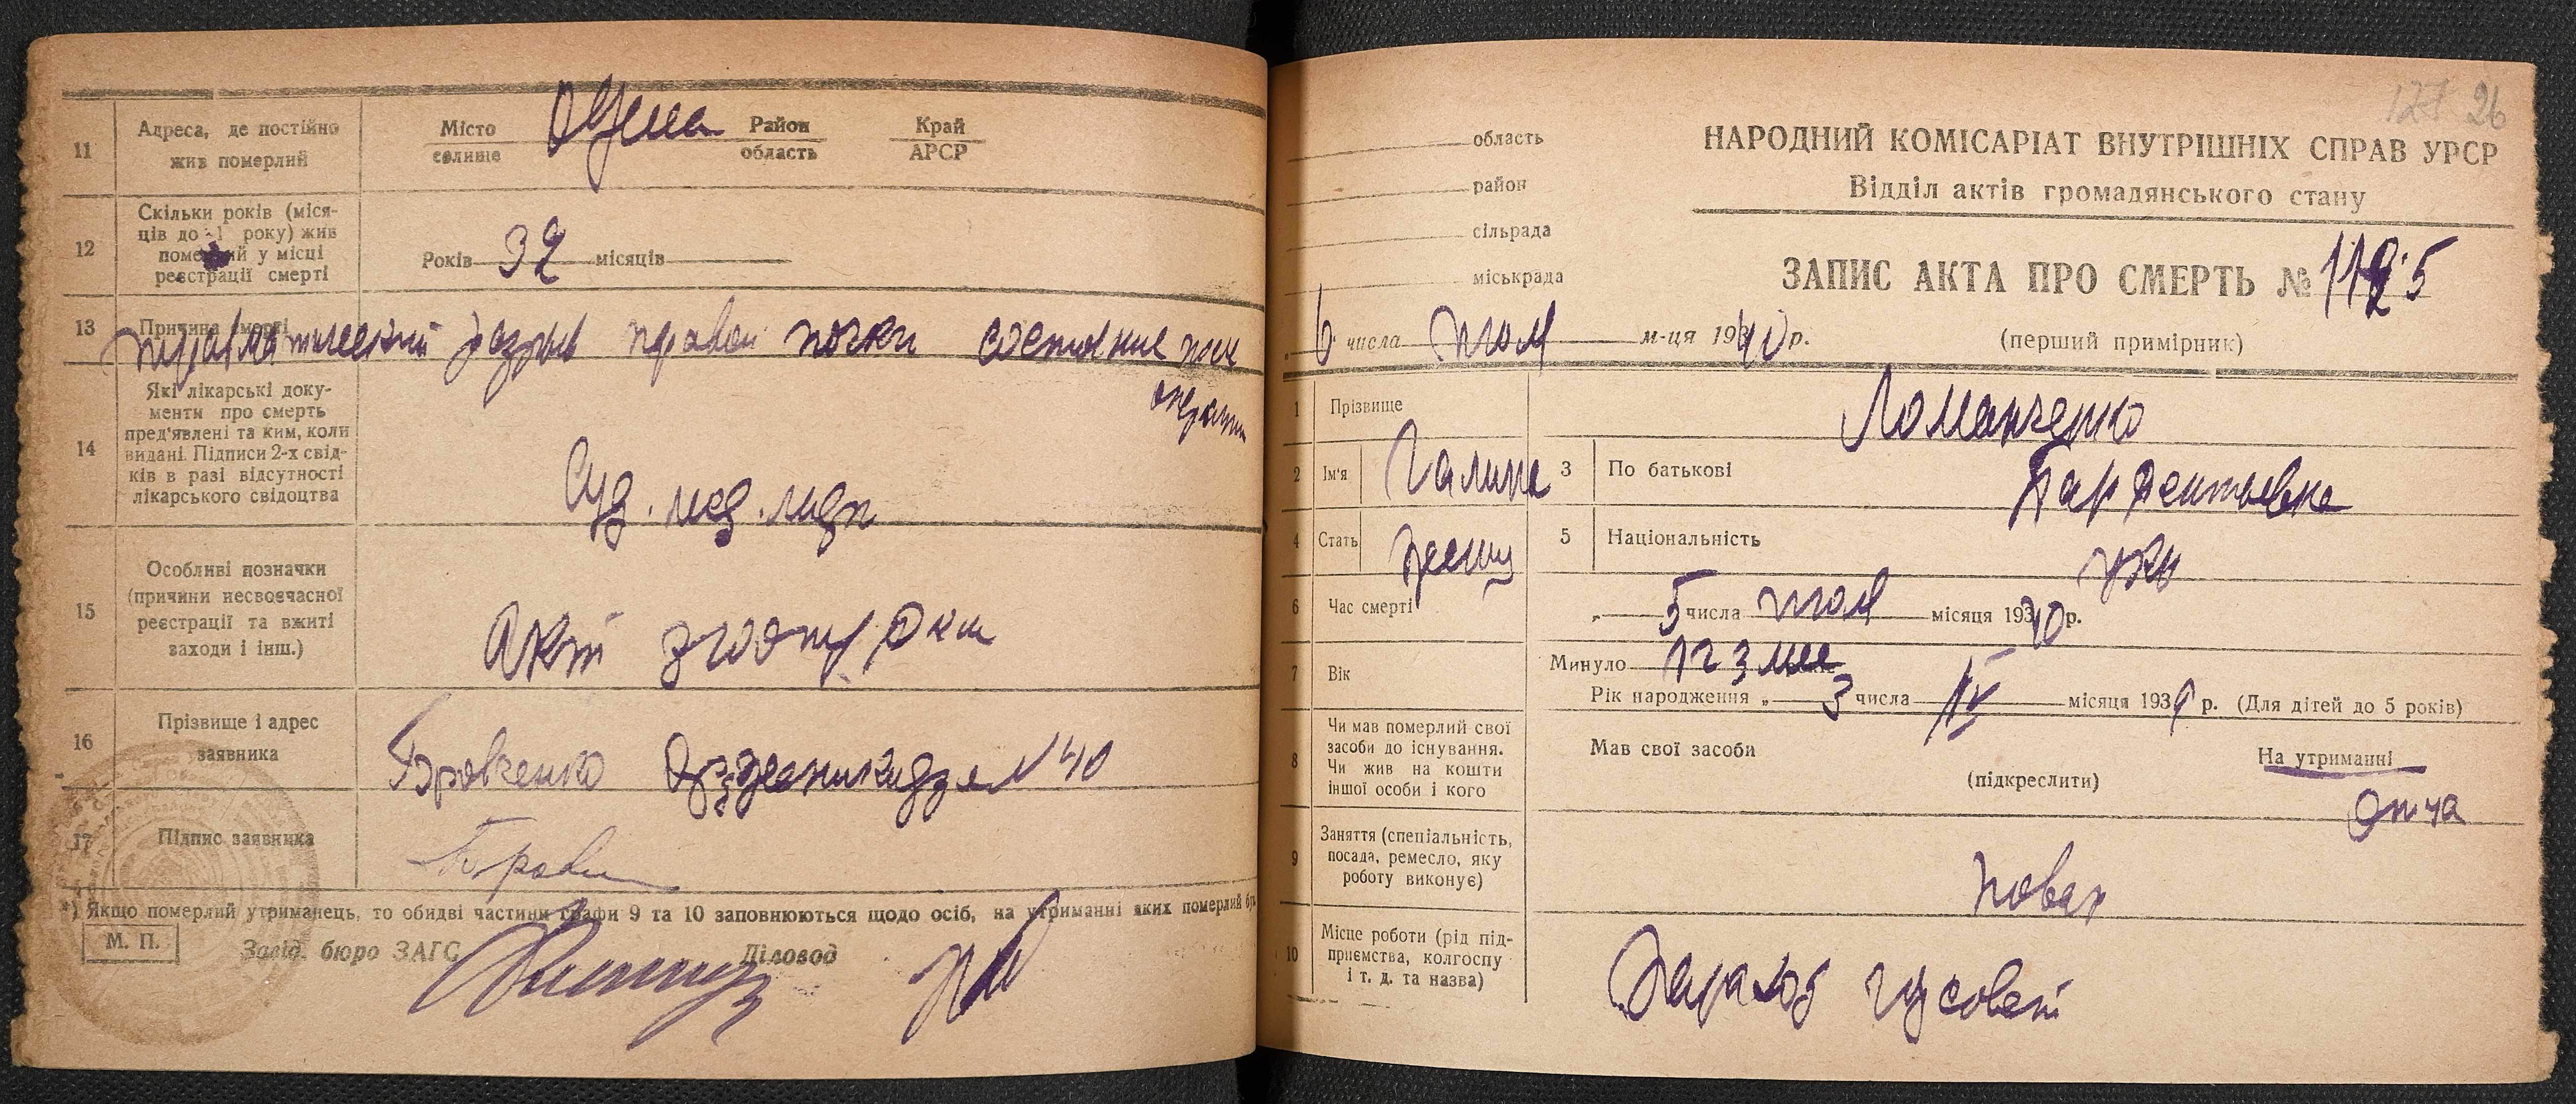 11
Адреса, де постійно
жив померлий
Місто
селище
Район
область
Край
АРСР
12
Скільки років (міся-
ців до 1 року) жив
померлий у місці
реєстрації смерті
Років 32 місяців
13
Причина смерті
травматический разрыв правой почки состояние после
операции
14
Які лікарські доку-
менти про смерть
пред'явлені та ким, коли
видані. Підписи 2-х свід-
ків в разі відсутності
лікарського свідоцтва
Суд. мед.
15
Особливі позначки
(причини несвоєчасної
реєстрації та вжиті
заходи і інш.)
Акт
16
Прізвище і адрес
заявника
Бровченко Орджоникидзе N 40
17
Підпис заявника
*) Якщо померлий утриманець, то обидві частини графи 9 та 10 заповнюються щодо осіб, на утриманні яких померлий
М. П.
Завід. бюро ЗАГС
Діловод
121 26
область
район
сільрада
міськрада
НАРОДНИЙ КОМІСАРІАТ ВНУТРІШНІХ СПРАВ УРСР
Відділ актів громадянського стану
ЗАПИС АКТА ПРО СМЕРТЬ № 1125
(перший примірник)
„ 6 числа июля м-ця 1940 р.
1
Прізвище
Ломанченко
2
Ім'я
Галина
3
По батькові
Парфентьевна
4
Стать
женщ
5
Національність
укр
6
Час смерті
„ 5 числа июля місяця 1940 р.
7
Вік
Минуло 1 г 3 мес
Рік народження „ 3 числа IV місяця 1939 р. (Для дітей до 5 років)
8
Чи мав померлий свої
засоби до існування.
Чи жив на кошти
іншої особи і кого
Мав свої засоби
(підкреслити)
На утриманні
отца
9
Заняття (спеціальність,
посада, ремесло, яку
роботу виконує)
повар
10
Місце роботи (рід під-
приємства, колгоспу
і т. д. та назва)